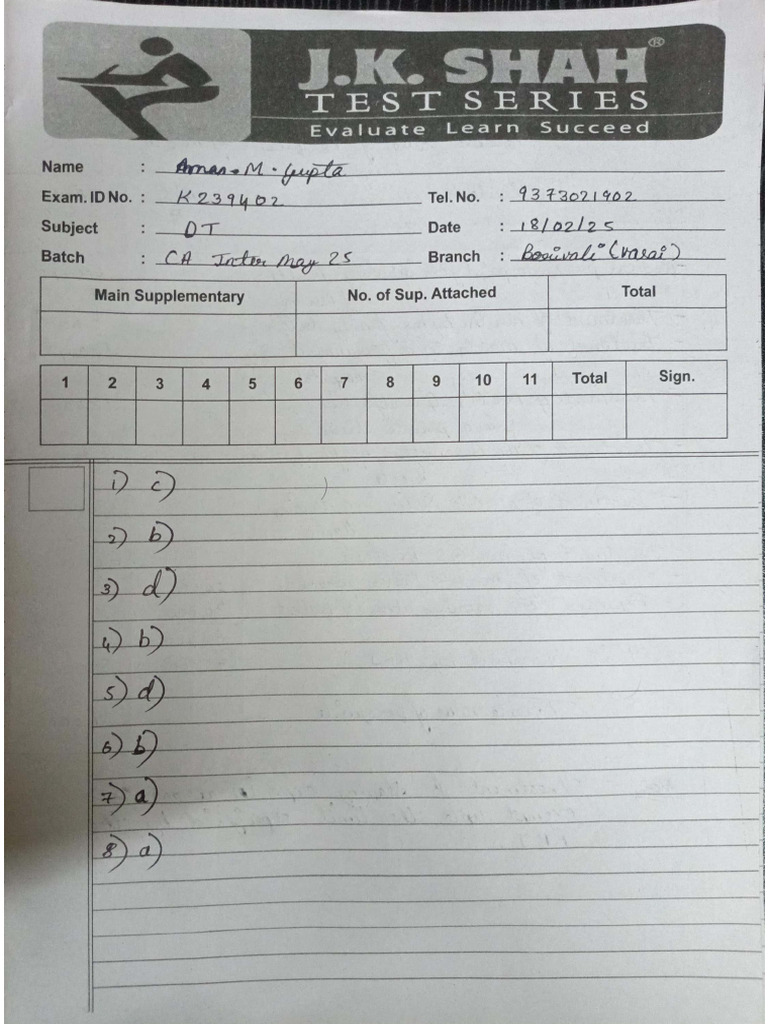 J.K. SHAH®
TEST SERIES
Evaluate Learn Succeed
Name : Aman M. Gupta
Exam. ID No. : K239402 Tel. No. : 9373021902
Subject : DT Date : 18/02/25
Batch : CA Inter May 25 Branch : Borivali (Vasai)
Main Supplementary No. of Sup. Attached Total
1 2 3 4 5 6 7 8 9 10 11 Total Sign.
1) c)
2) b)
3) d)
4) b)
5) d)
6) b)
7) a)
8) a)